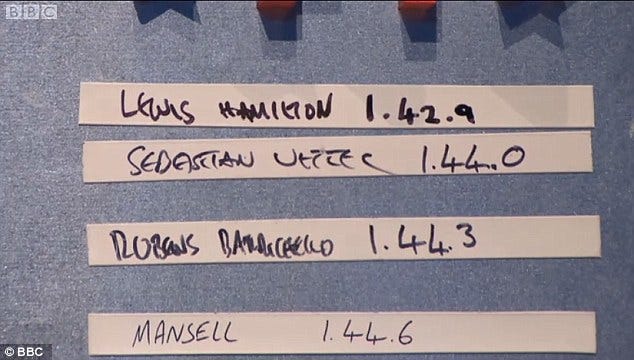 BBC
LEWIS HAMILTON 1.42.9
SEBASTIAN VETTEL 1.44.0
RUBENS BARRICHELLO 1.44.3
MANSELL 1.44.6
© BBC